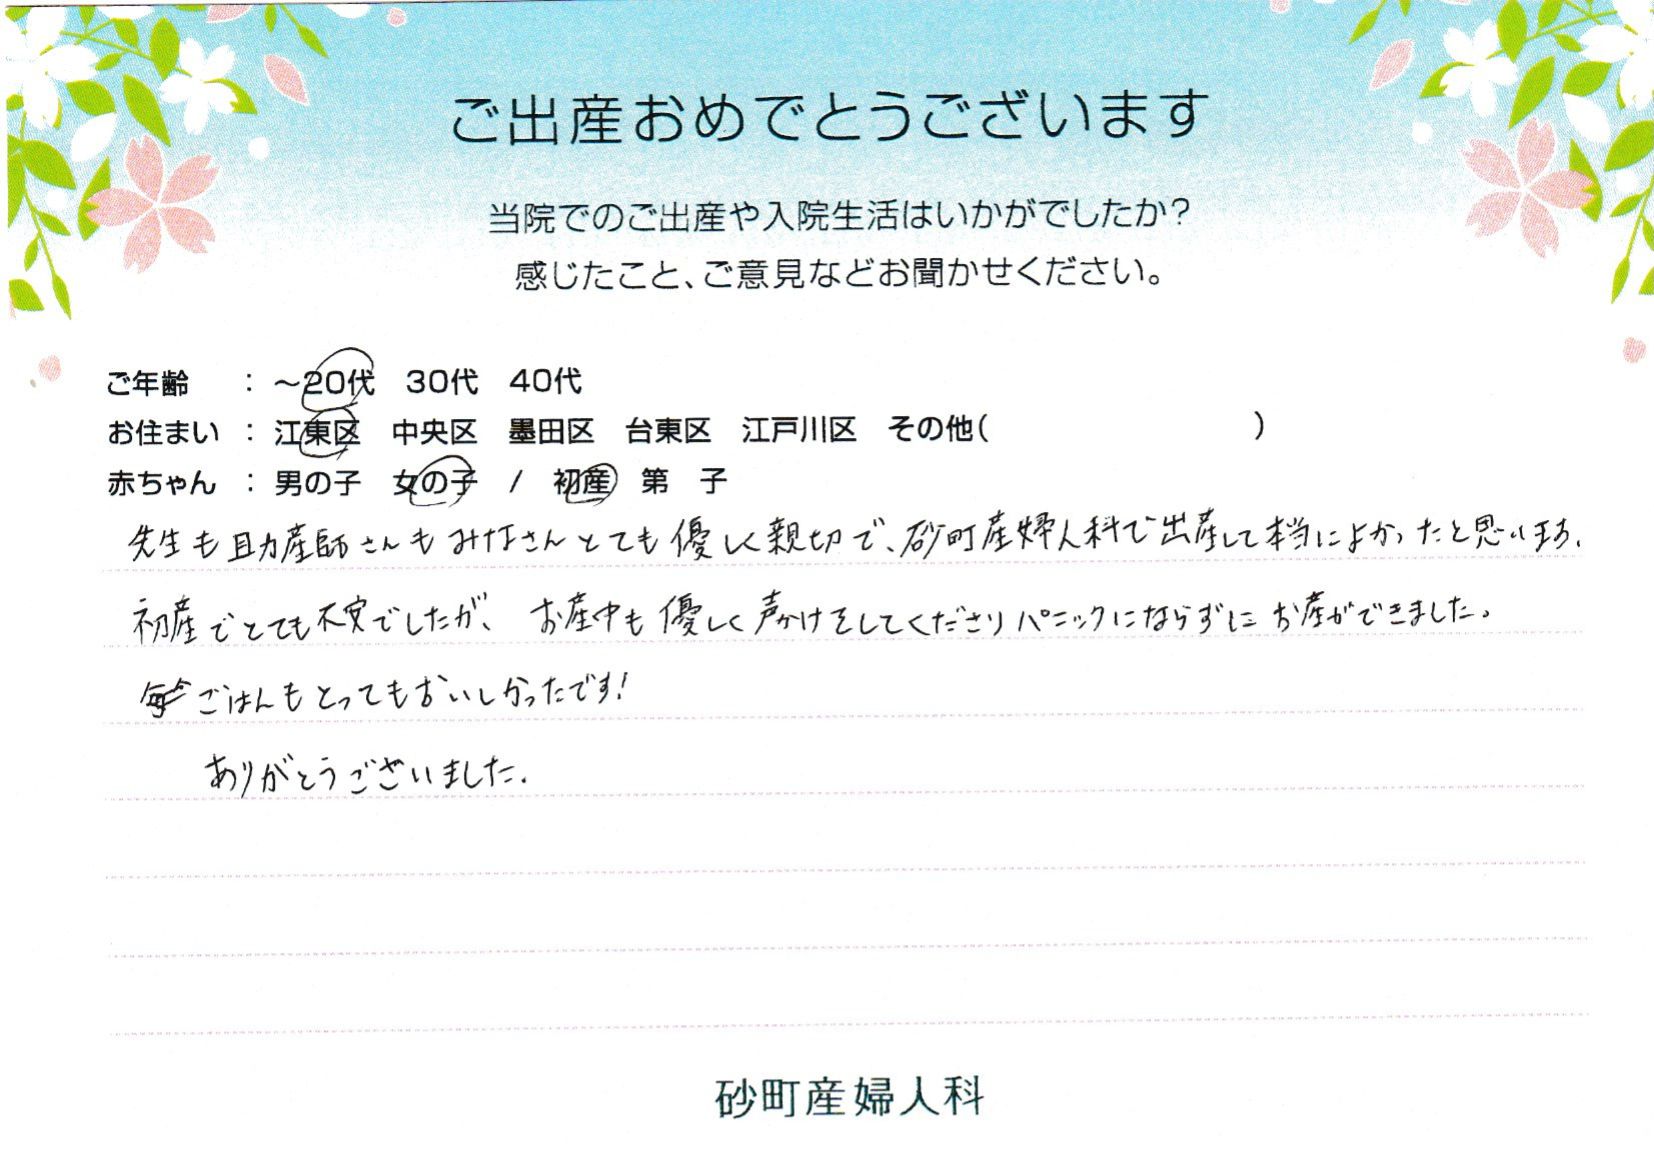 ご出産おめでとうございます
当院でのご出産や入院生活はいかがでしたか?
感じたこと、ご意見などお聞かせください。
ご年齢 : ～20代 30代 40代
お住まい : 江東区 中央区 墨田区 台東区 江戸川区 その他( )
赤ちゃん : 男の子 女の子 / 初産 第 子
先生も助産師さんもみなさんとても優しく親切で、砂町産婦人科で出産して本当によかったと思います。
初産でとても不安でしたが、お産中も優しく声かけをしてくださりパニックにならずにお産ができました。
ごはんもとってもおいしかったです!
ありがとうございました.
砂町産婦人科